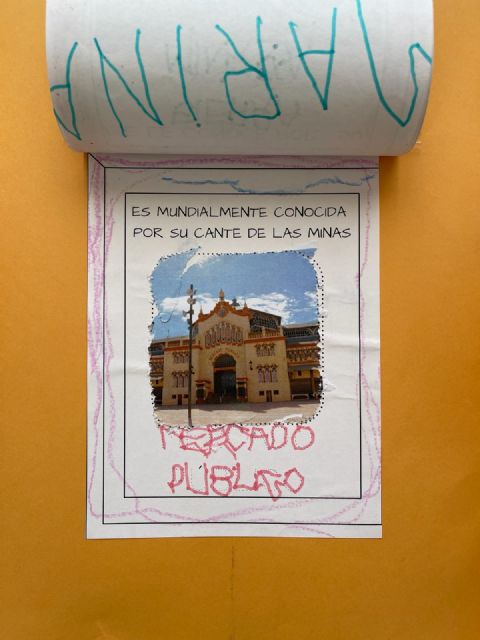 MARINA
ES MUNDIALMENTE CONOCIDA
POR SU CANTE DE LAS MINAS
MERCADO
PÚBLICO